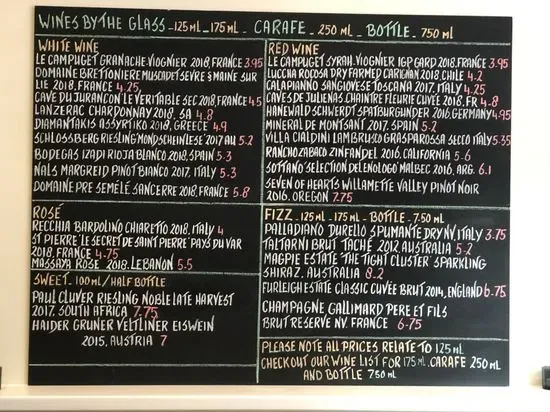 WINES BY THE GLASS - 125 ML - 175 ML - CARAFE - 250 ML - BOTTLE - 750 ML
WHITE WINE
LE CAMPUGET GRANACHE-VIOGNIER 2018, FRANCE 3.95
DOMAINE BRETTONIERE MUSCADET SEVRE & MAINE SUR
LIE 2018, FRANCE 4.25
CAVE DU JURANCON LE VERITABLE SEC 2018, FRANCE 4.5
LANZERAC CHARDONNAY 2018, SA 4.8
DIAMANTAKIS ASSYRTIKO 2018, GREECE 4.9
SCHLOSSBERG RIESLING MONDSCHEINLESE 2017 AU 5.2
BODEGAS IZADI RIOJA BLANCO 2018, SPAIN 5.3
NALS MARGREID PINOT BIANCO 2017, ITALY 5.3
DOMAINE PRE SEMELÉ SANCERRE 2018, FRANCE 5.8
ROSÉ
RECCHIA BARDOLINO CHIARETTO 2018, ITALY 4
ST PIERRE 'LE SECRET DE SAINT PIERRE' PAYS DU VAR
2018, FRANCE 4.75
MASSAYA ROSE 2018, LEBANON 5.5
SWEET - 100 ML / HALF BOTTLE
PAUL CLUVER RIESLING NOBLE LATE HARVEST
2017, SOUTH AFRICA 7.75
HAIDER GRUNER VELTLINER EISWEIN
2015, AUSTRIA 7
RED WINE
LE CAMPUGET SYRAH-VIOGNIER IGP GARD 2018, FRANCE 3.95
LUCCHA ROCOSA DRY FARMED CARIGNAN 2018, CHILE 4.2
CALAPIANNO SANGIOVESE TOSCANA 2017, ITALY 4.25
CAVES DE JULIENAS CHAINTRE FLEURIE CUVÉE 2018, FR 4.8
HANEWALD SCHWERDT SPATBURGUNDER 2016, GERMANY 4.95
MINERAL DE MONTSANT 2017, SPAIN 5.2
VILLA CIALDINI LAMBRUSCO GRASPAROSSA SECO ITALY 5.35
RANCHO ZABACO ZINFANDEL 2016, CALIFORNIA 5.6
SOTTANO SELECTION DEL ENOLOGO MALBEC 2016, ARG. 6.1
SEVEN OF HEARTS WILLAMETTE VALLEY PINOT NOIR
2016, OREGON 7.75
FIZZ - 125 ML - 175 ML - BOTTLE - 750 ML
PALLADIANO DURELLO SPUMANTE DRY NV, ITALY 3.75
TALTARNI BRUT TACHÉ 2012, AUSTRALIA 5.2
MAGPIE ESTATE 'THE TIGHT CLUSTER' SPARKLING
SHIRAZ, AUSTRALIA 8.2
FURLEIGH ESTATE CLASSIC CUVÉE BRUT 2014, ENGLAND 6.75
CHAMPAGNE GALLIMARD PERE ET FILS
BRUT RESERVE NV. FRANCE 6.75
PLEASE NOTE ALL PRICES RELATE TO 125 ML
CHECK OUT OUR WINE LIST FOR 175 ML, CARAFE 250 ML
AND BOTTLE 750 ML